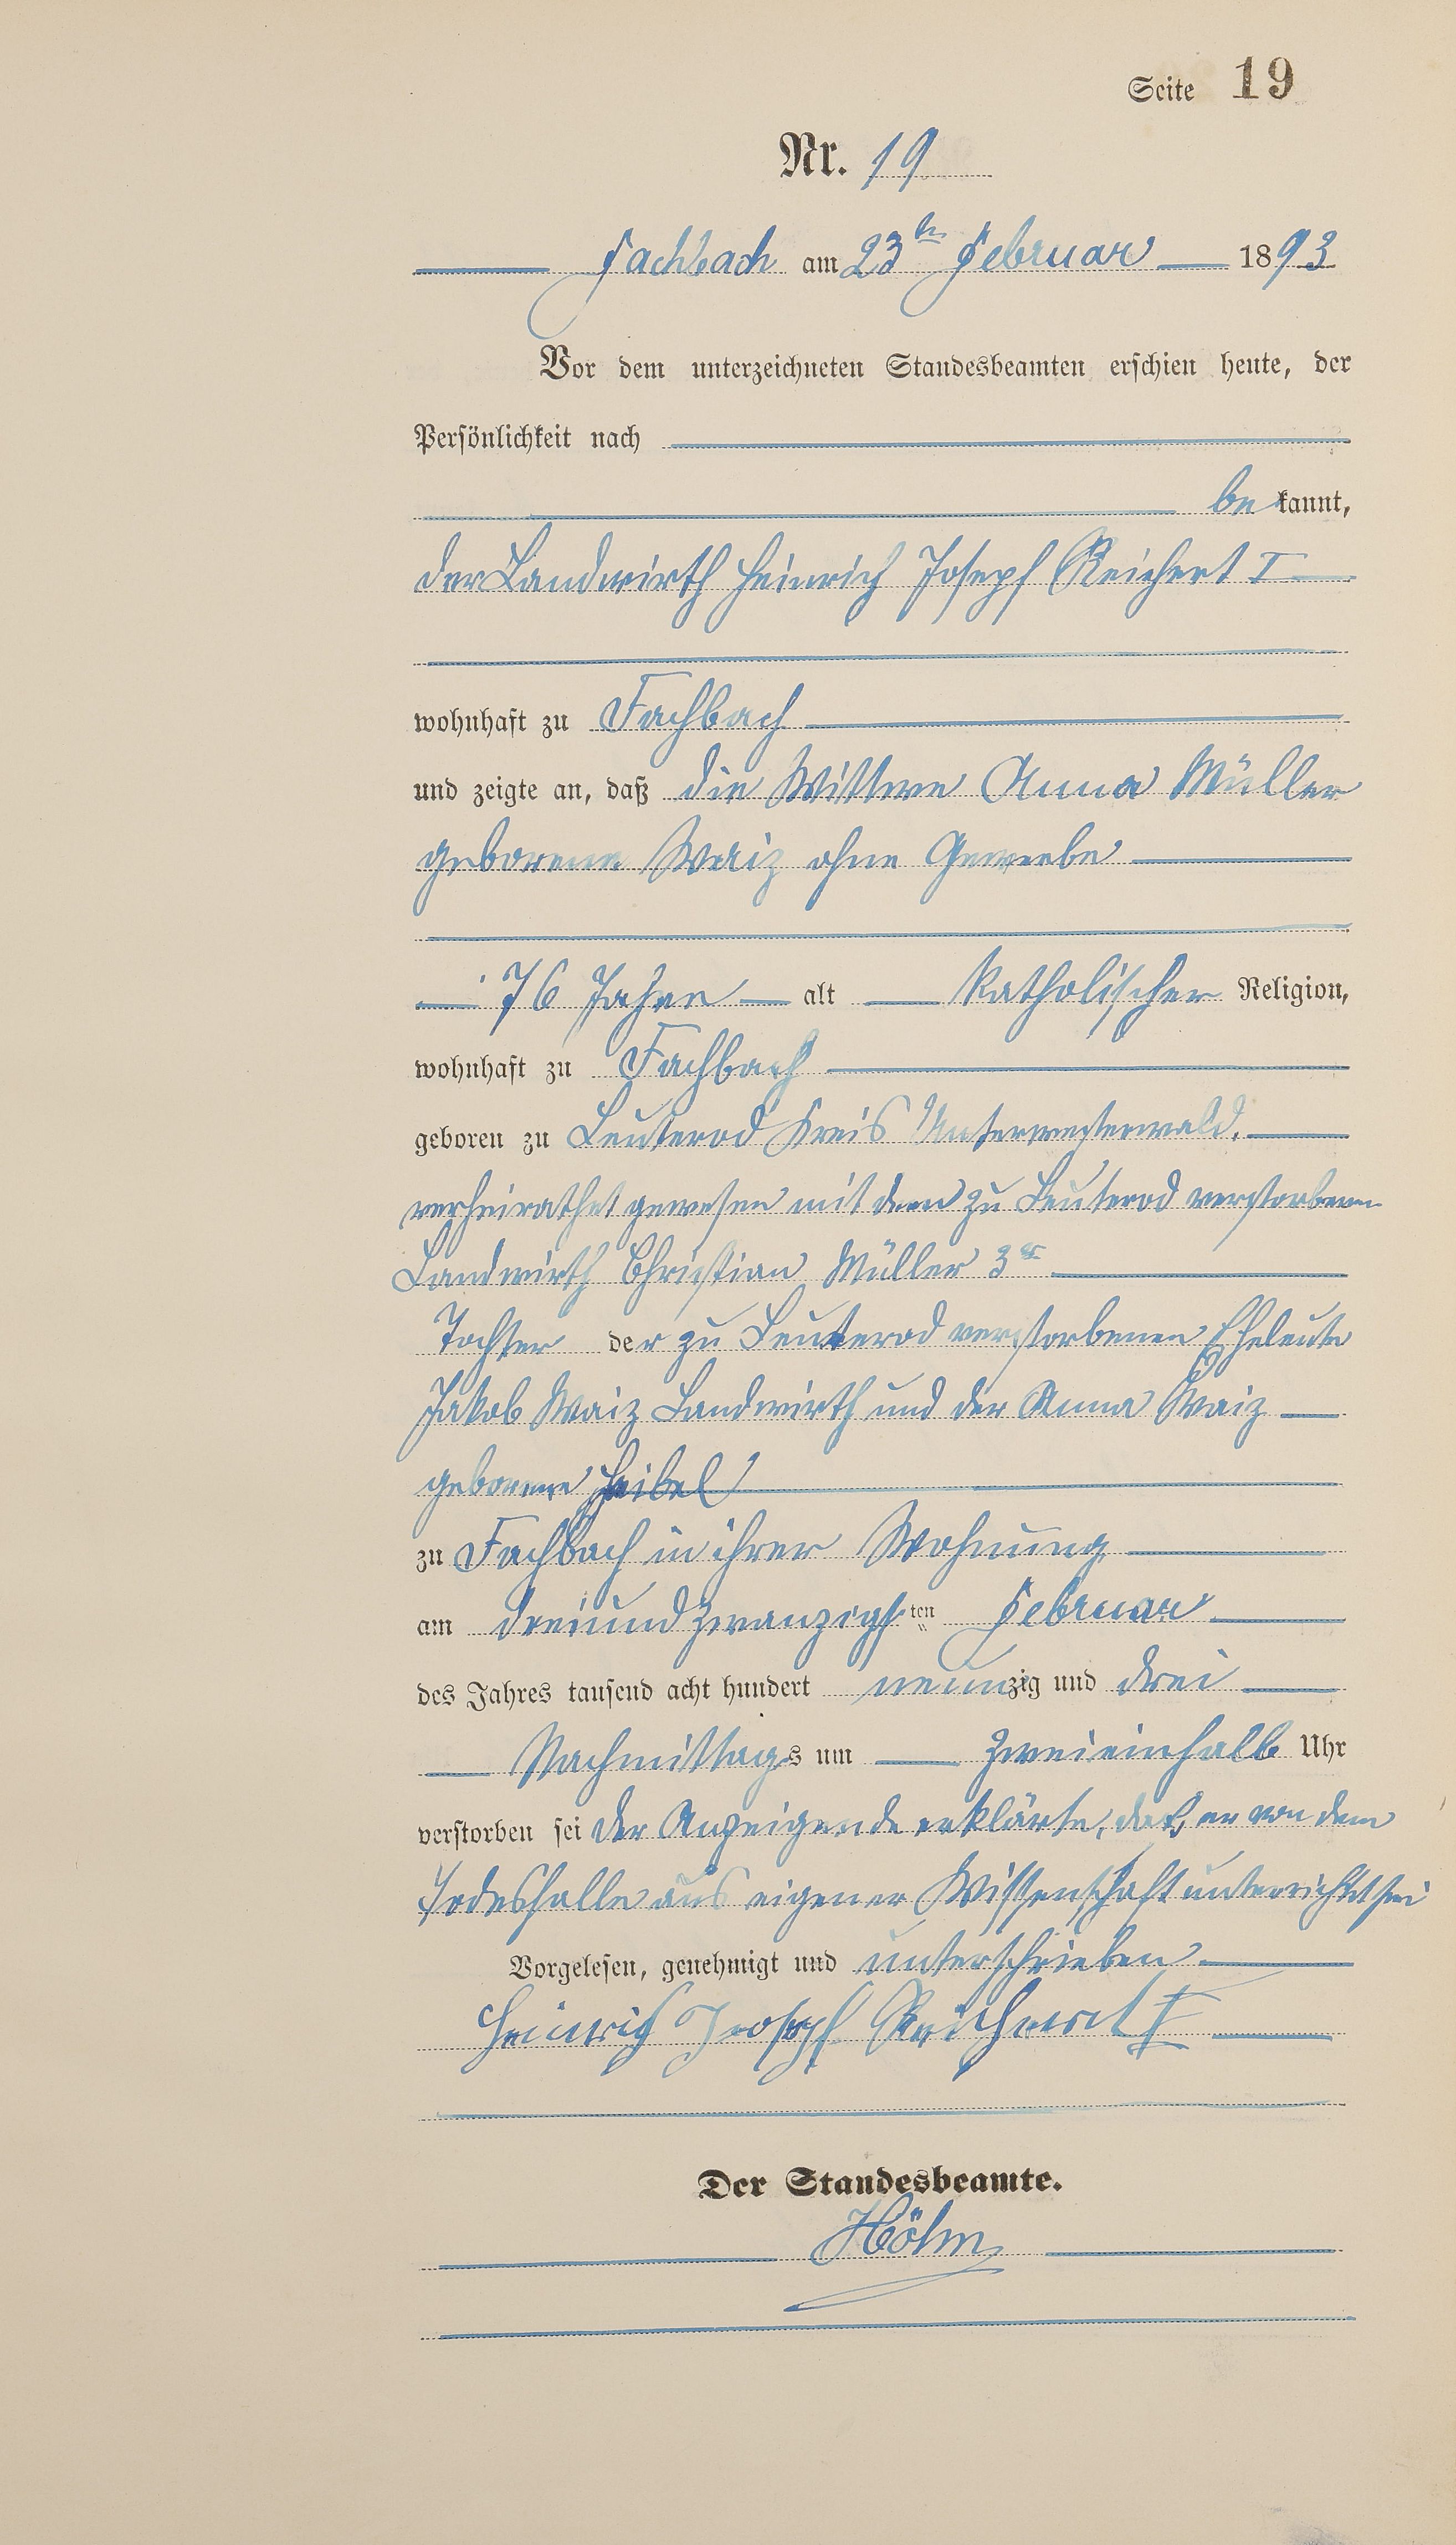 Seite 19
Nr. 19
Fachbach am 23ten Februar 1893
Vor dem unterzeichneten Standesbeamten erschien heute, der
Persönlichkeit nach
be kannt,
der Landwirth Heinrich Joseph Reichert I
wohnhaft zu Fachbach
und zeigte an, daß die Wittwe Anna Müller
geborene Waiz ohne Gewerbe
76 Jahren alt katholischer Religion,
wohnhaft zu Fachbach
geboren zu Leuterod Kreis Unterwesterwald.
verheirathet gewesen mit dem zu Leuterod verstorbenen
Landwirth Christian Müller 3r
Tochter der zu Leuterod verstorbenen Eheleute
Jakob Waiz Landwirth und der Anna Waiz
geborene Heibel
zu Fachbach in ihrer Wohnung
am dreiundzwanzigsten Februar
des Jahres tausend acht hundert neunzig und drei
Nachmittags um zweieinhalb Uhr
verstorben sei der Anzeigende erklärte, daß er von dem
Todesfalle aus eigener Wissenschaft unterrichtet sei
Vorgelesen, genehmigt und unterschrieben
Heinrich Joseph Reichert I
Der Standesbeamte.
Höhn